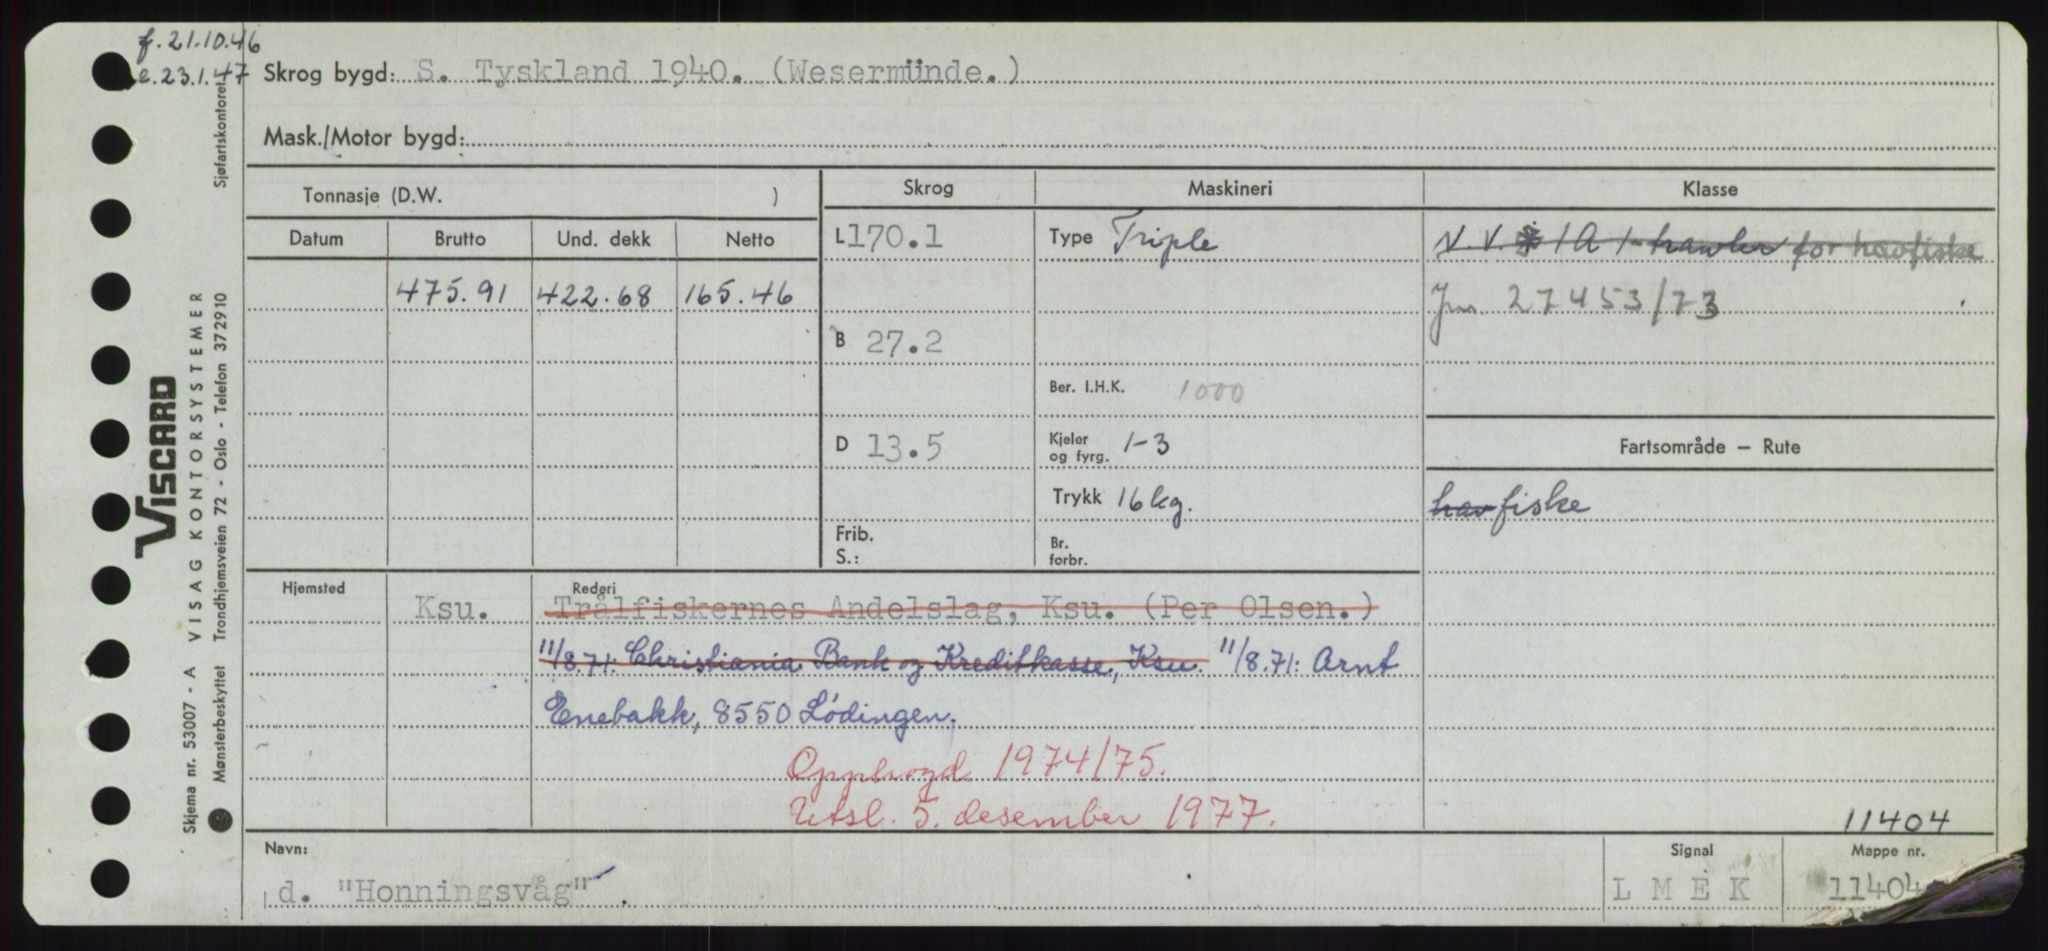 f. 21.10.46
e. 23.1.47
Skrog bygd: S. Tyskland 1940. (Wesermünde.)
Mask./Motor bygd:
Tonnasje (D.W. )
Skrog
Maskineri
Klasse
Datum
Brutto
Und. dekk
Netto
L 170.1
Type Triple
N.V. 1A1- trawler for havfiske
475.91
422.68
165.46
Jnr. 27453/73
B 27.2
Ber. I.H.K. 1000
D 13.5
Kjeler
og fyrg. 1-3
Fartsområde — Rute
Trykk 16 kg.
havfiske
Frib.
S.:
Br.
forbr.
Hjemsted
Ksu.
Rederi
Trålfiskernes Andelslag, Ksu. (Per Olsen.)
11/8.71: Christiania Bank og Kreditkasse, Ksu. 11/8.71: Arnt
Enebakk, 8550 Lødingen.
Opphogd 1974/75.
Utsl. 5. desember 1977.
11404
Navn:
d. "Honningsvåg" .
Signal
L M E K
Mappe nr.
11404
VISCARD
VISAG KONTORSYSTEMER
Sjøfartskontoret
Trondhjemsveien 72 - Oslo - Telefon 372910
Skjema nr. 53007 - A
Mønsterbeskyttet